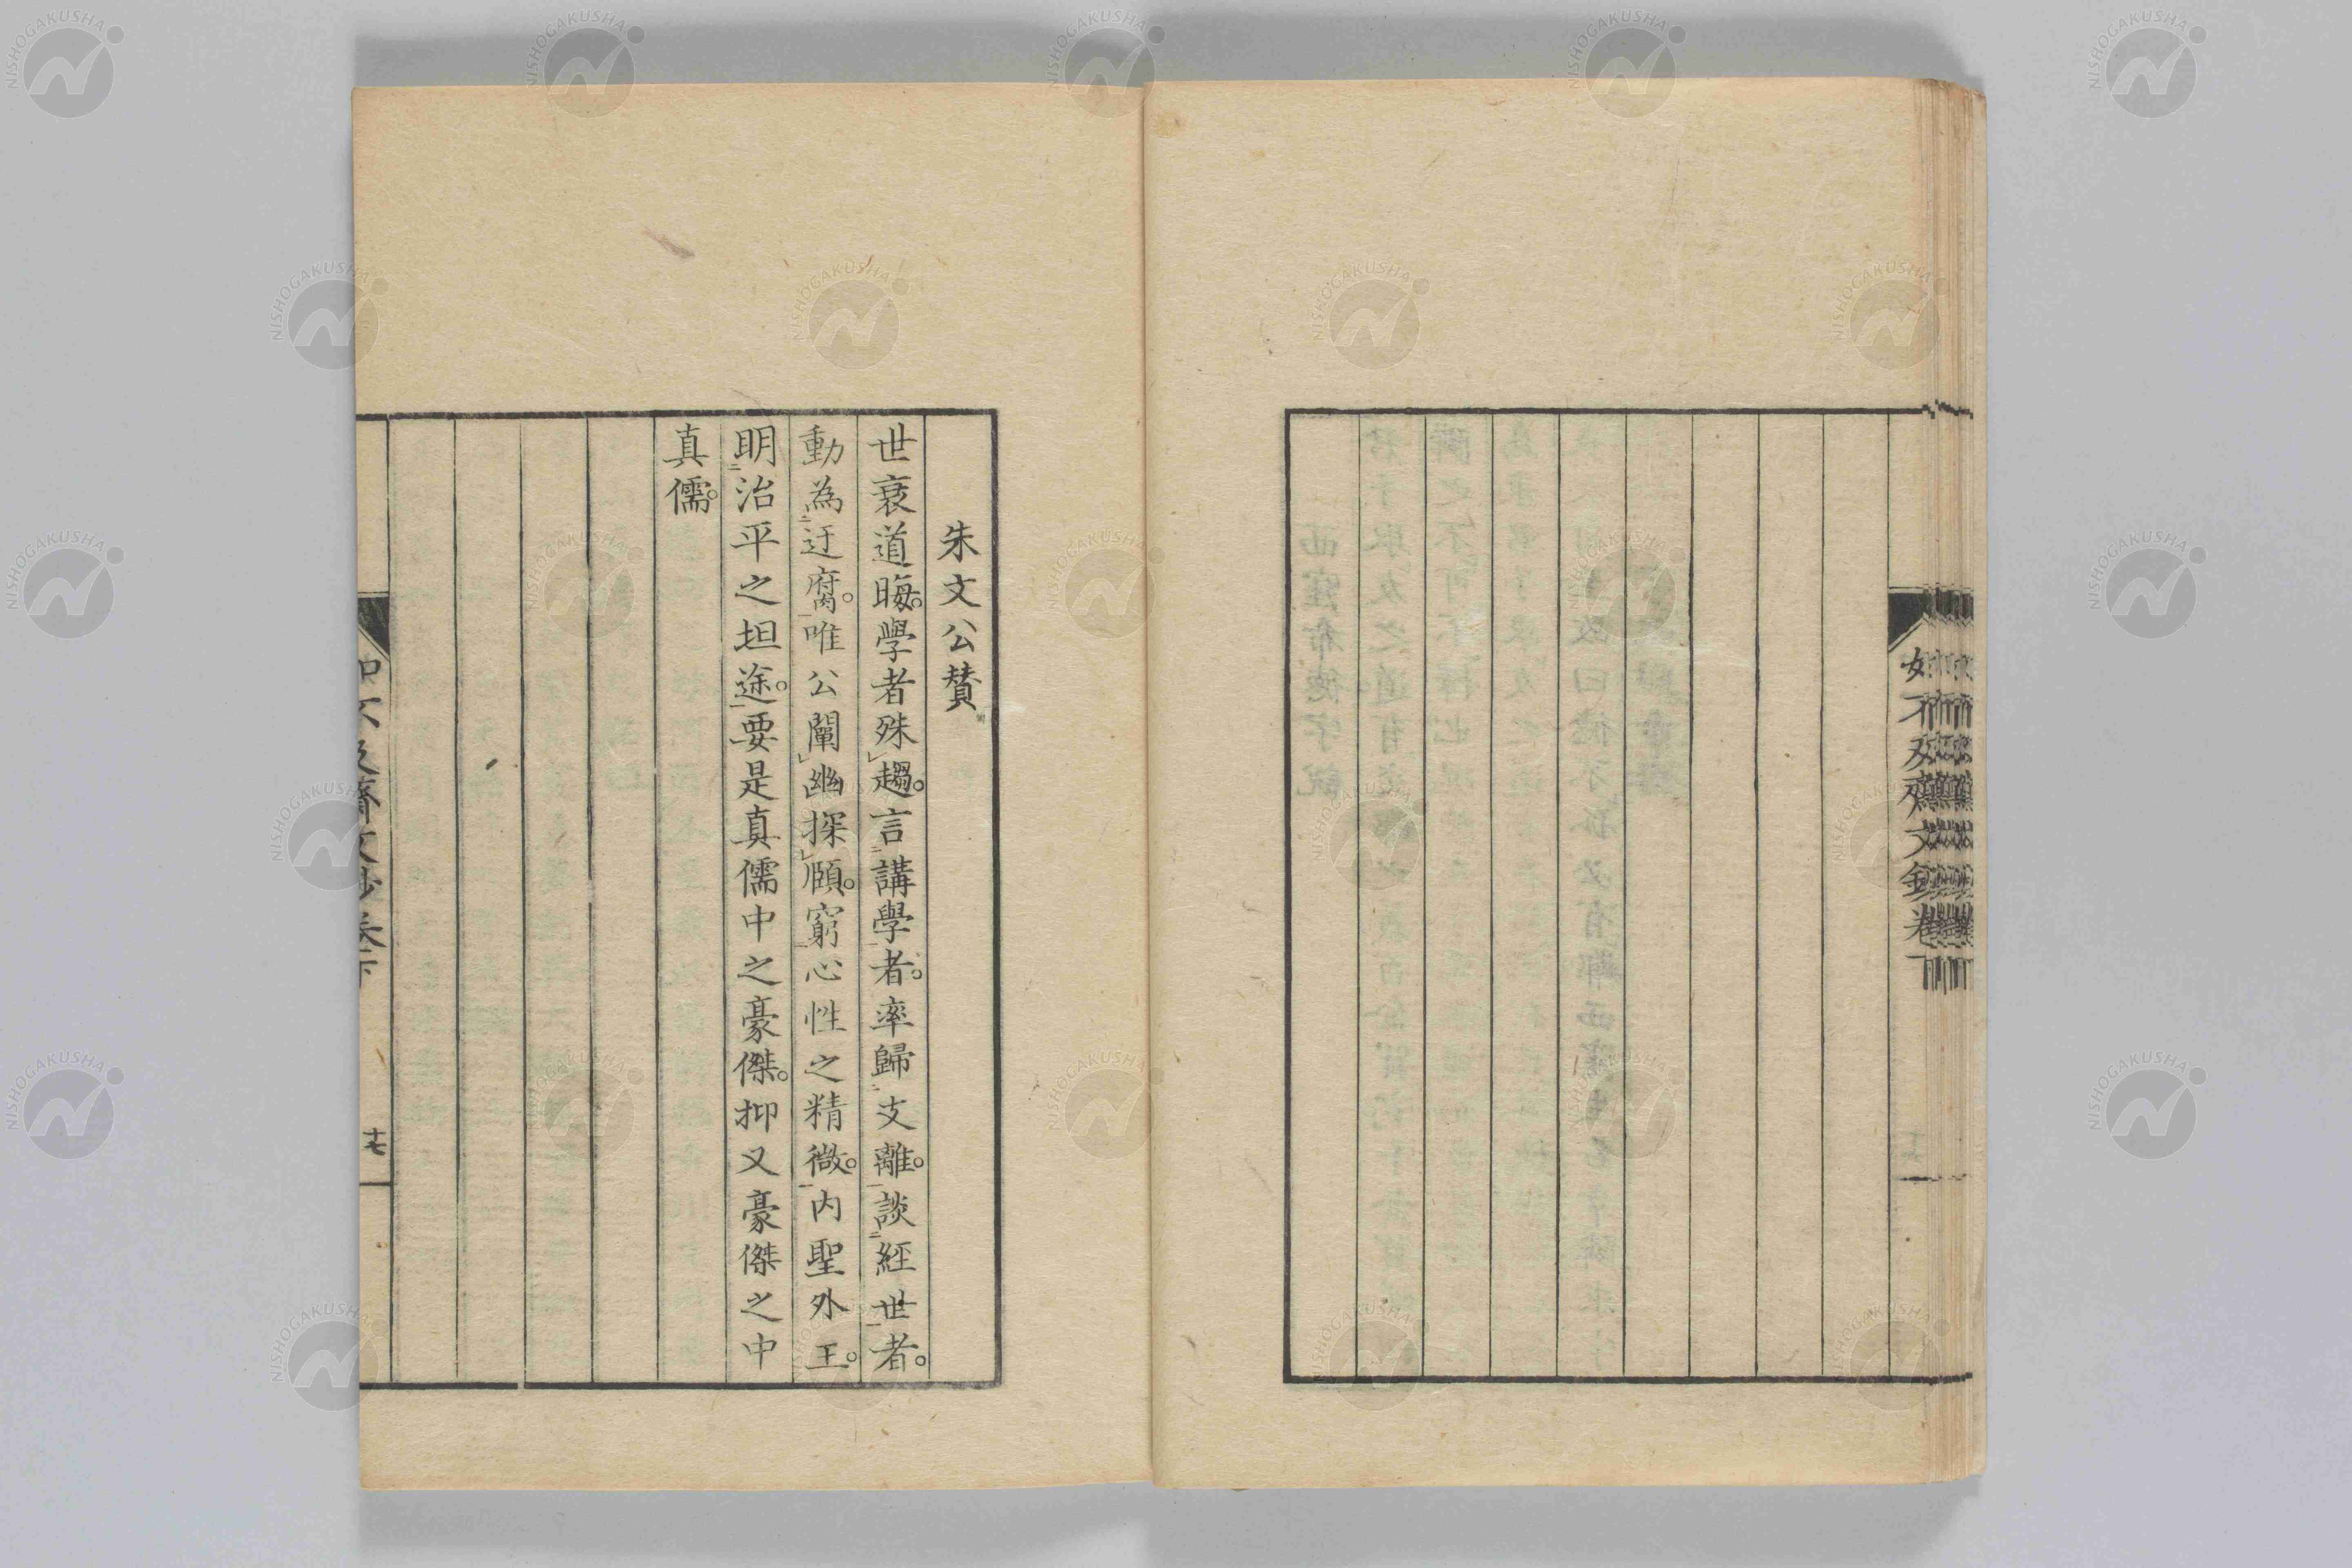 如不及齋文鈔卷
朱文公贊
世衰道晦。學者殊趨。言講學者。率歸支離。談經世者。
動為迂腐。唯公闡幽探頤。窮心性之精微。内聖外王。
明治平之坦途。要是真儒中之豪傑。抑又豪傑之中
真儒。
如不及齋文鈔卷下
十七
NISHOGAKUSHA